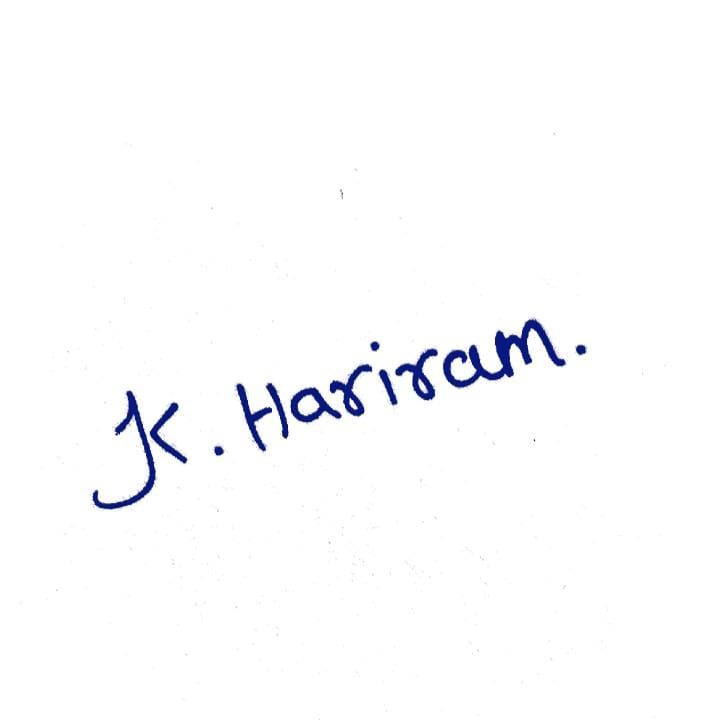 K. Hariram.